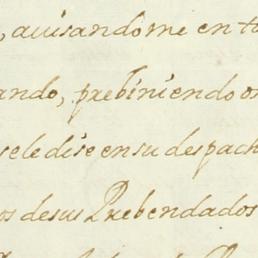 , auisandome en t
ando, prebiniendo os
sele dise en su despach
os de sus Prebendados